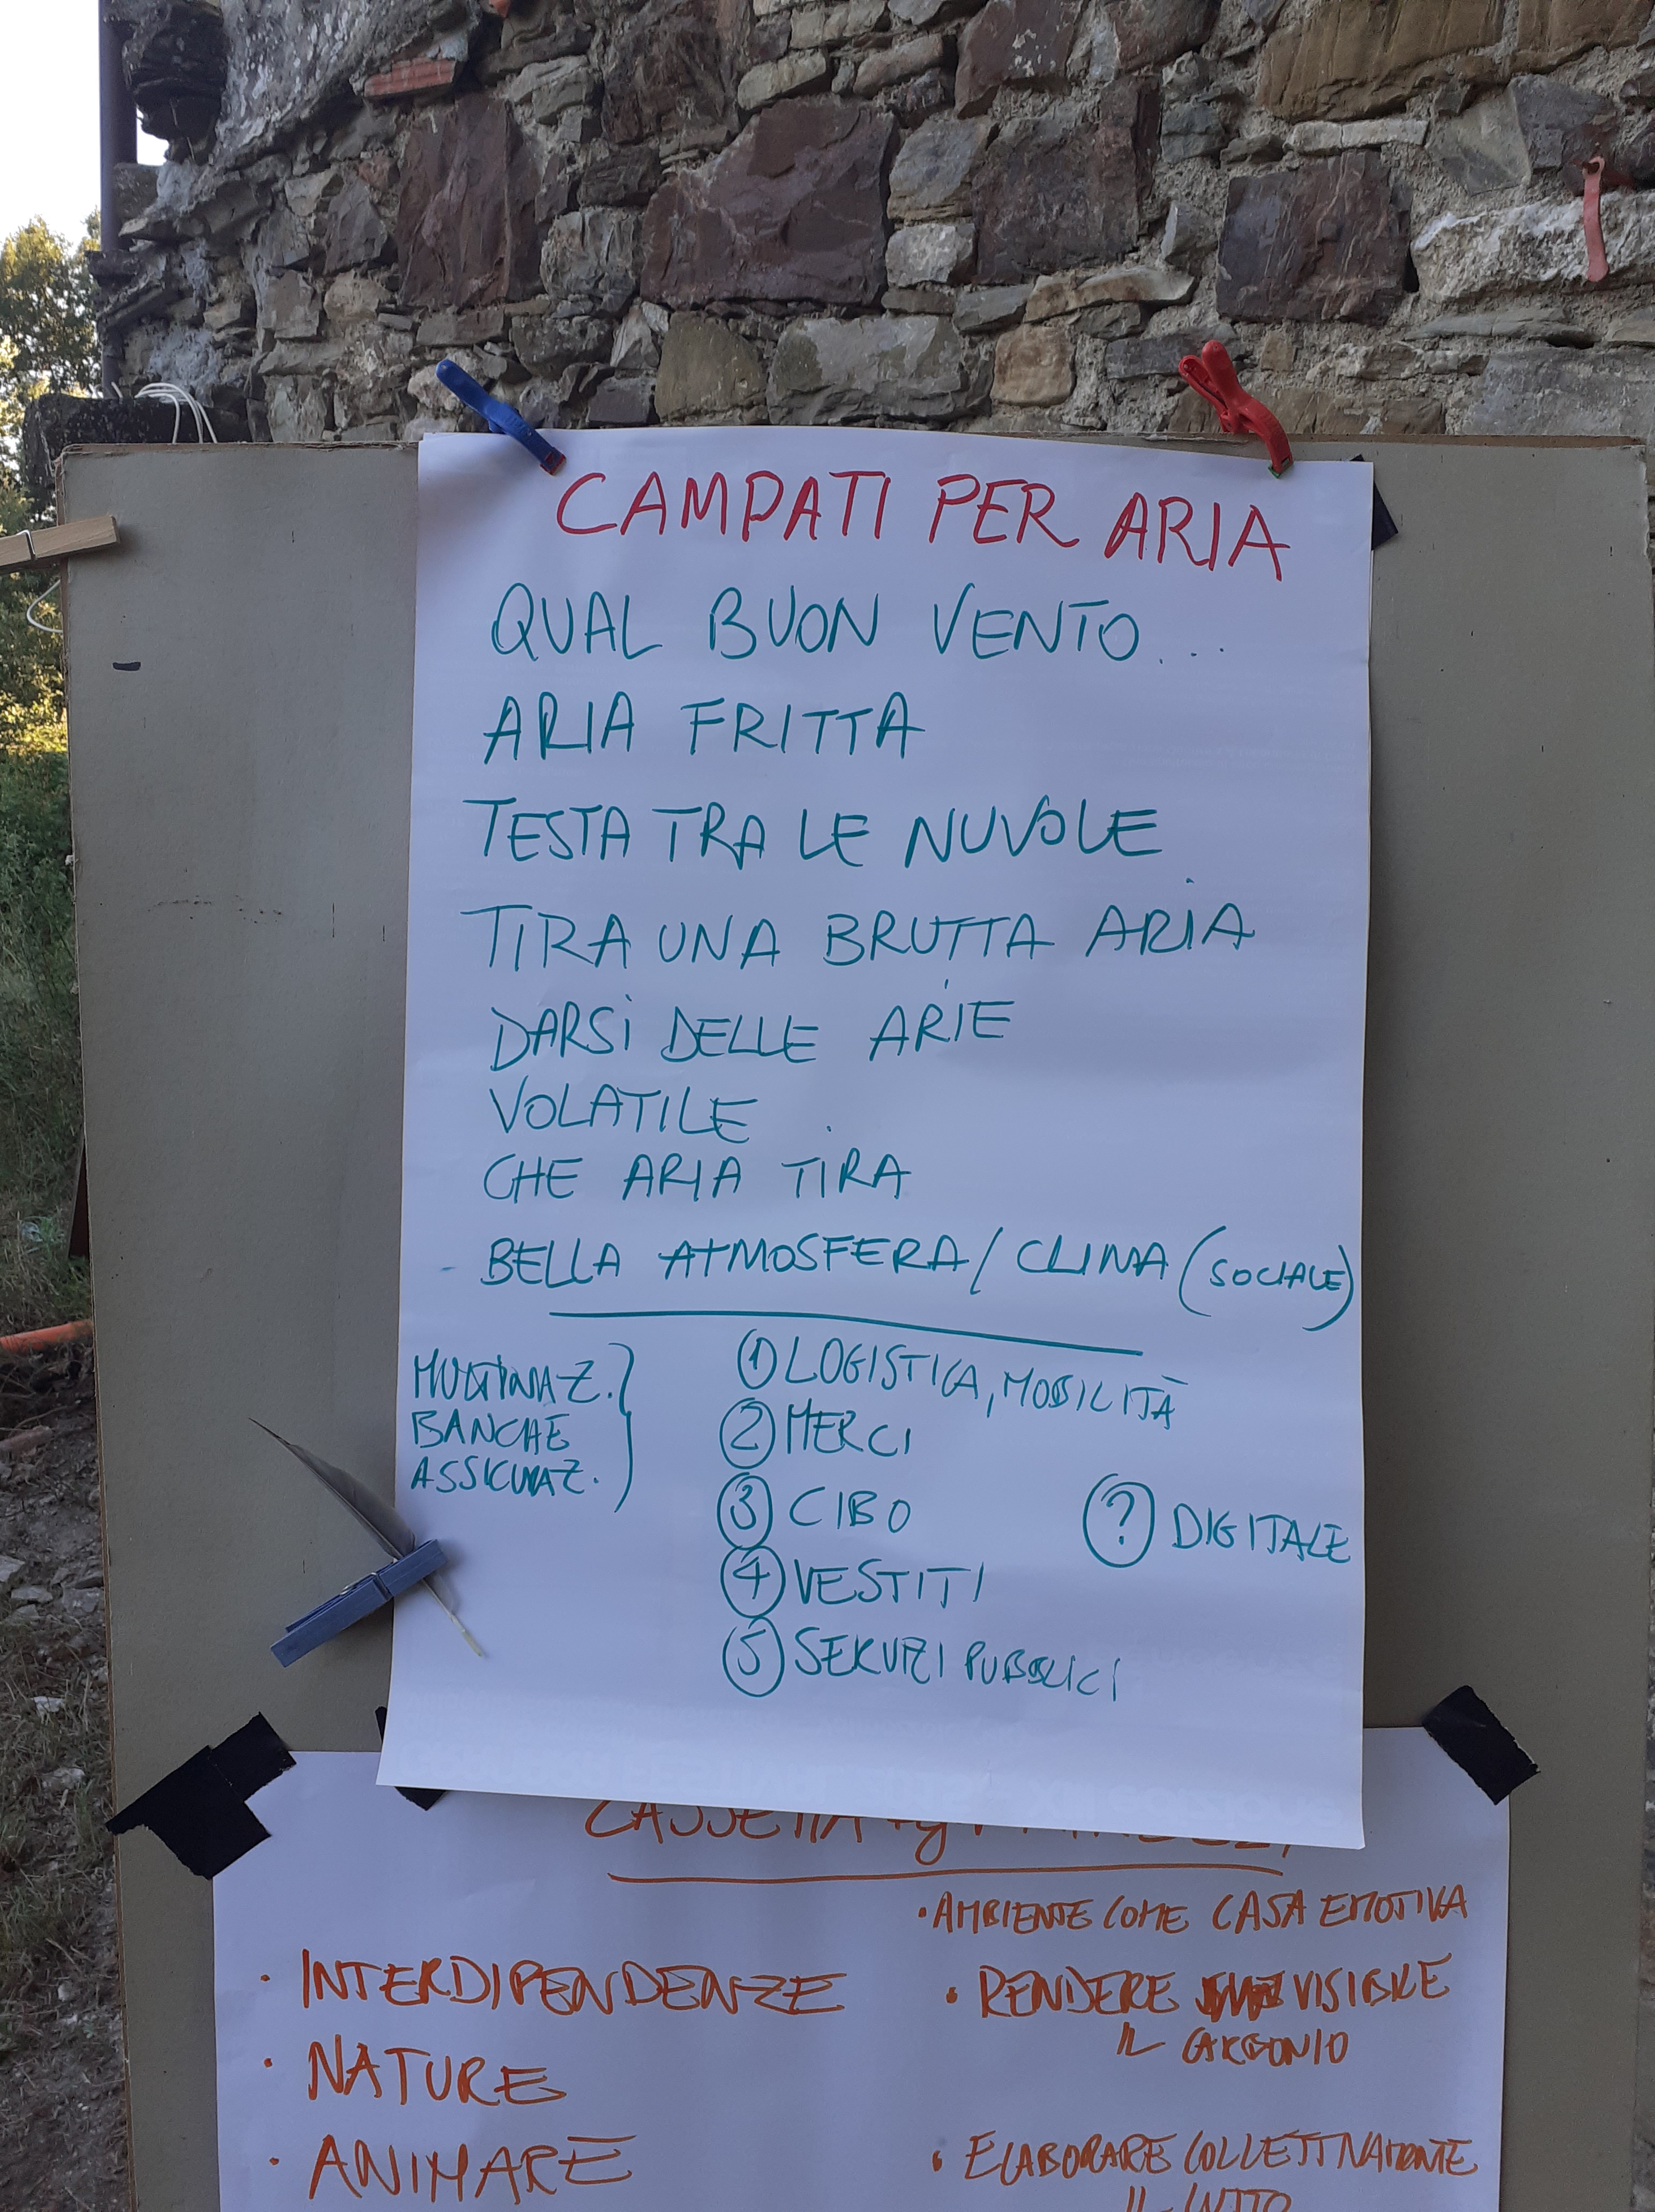 CAMPATI PER ARIA
QUAL BUON VENTO...
ARIA FRITTA
TESTA TRA LE NUVOLE
TIRA UNA BRUTTA ARIA
DARSI DELLE ARIE
VOLATILE
CHE ARIA TIRA
- BELLA ATMOSFERA / CLIMA (SOCIALE)
MULTINAZ.
BANCHE
ASSICURAZ.
1 LOGISTICA, MOBILITÀ
2 MERCI
3 CIBO
4 VESTITI
5 SERVIZI PUBBLICI
? DIGITALE
CASSETTA
• INTERDIPENDENZE
• NATURE
• ANIMARE
• AMBIENTE COME CASA EMOTIVA
• RENDERE VISIBILE
IL CARBONIO
• ELABORARE COLLETTIVAMENTE
IL LUTTO